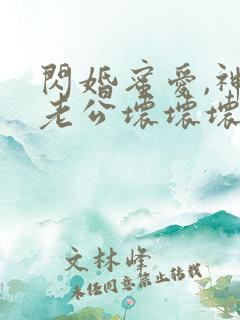 閃婚蜜愛,神
老公壞壞壞
文林峰
未任同意禁止转载